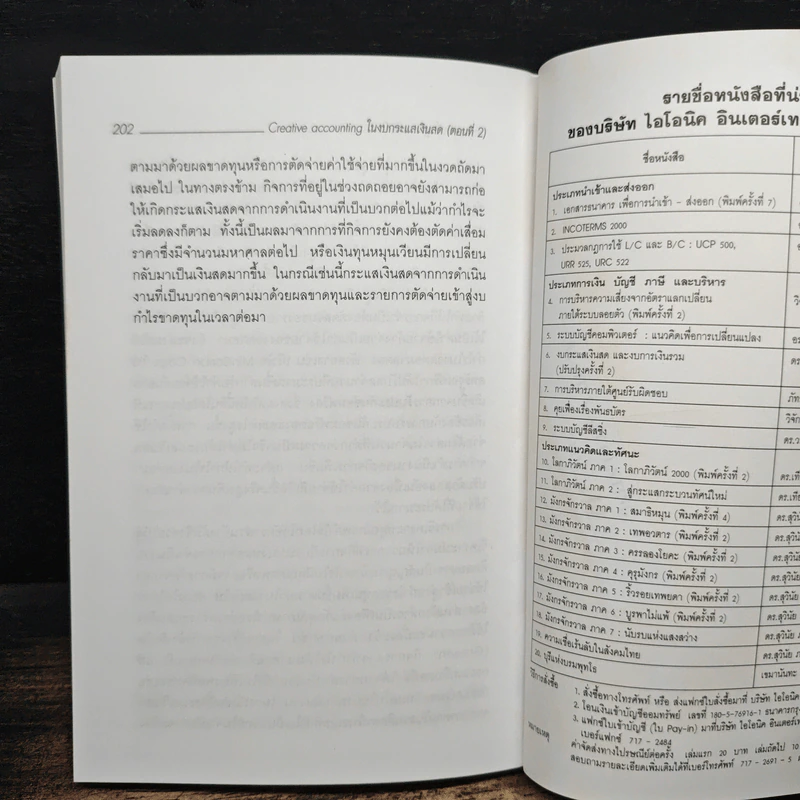 202 Creative accounting ในงบกระแสเงินสด (ตอนที่ 2)
ตามมาด้วยผลขาดทุนหรือการตัดจ่ายค่าใช้จ่ายที่มากขึ้นในงวดถัดมา
เสมอไป ในทางตรงข้าม กิจการที่อยู่ในช่วงถดถอยอาจยังสามารถก่อ
ให้เกิดกระแสเงินสดจากการดำเนินงานที่เป็นบวกต่อไปแม้ว่ากำไรจะ
เริ่มลดลงก็ตาม ทั้งนี้เป็นผลมาจากการที่กิจการยังคงต้องตัดค่าเสื่อม
ราคาซึ่งมีจำนวนมหาศาลต่อไป หรือเงินทุนหมุนเวียนมีการเปลี่ยน
กลับมาเป็นเงินสดมากขึ้น ในกรณีเช่นนี้กระแสเงินสดจากการดำเนิน
งานที่เป็นบวกอาจตามมาด้วยผลขาดทุนและรายการตัดจ่ายเข้าสู่งบ
กำไรขาดทุนในเวลาต่อมา
รายชื่อหนังสือที่น่
ของบริษัท ไอโอนิค อินเตอร์เท
ชื่อหนังสือ
ประเภทนำเข้าและส่งออก
1. เอกสารธนาคาร เพื่อการนำเข้า - ส่งออก (พิมพ์ครั้งที่ 7)
2. INCOTERMS 2000
3. ประมวลกฎการใช้ L/C และ B/C : UCP 500,
URR 525, URC 522
ประเภทการเงิน บัญชี ภาษี และบริหาร
4. การบริหารความเสี่ยงจากอัตราแลกเปลี่ยน
ภายใต้ระบบลอยตัว (พิมพ์ครั้งที่ 2)
5. ระบบบัญชีคอมพิวเตอร์ : แนวคิดเพื่อการเปลี่ยนแปลง
6. งบกระแสเงินสด และงบการเงินรวม
(ปรับปรุงครั้งที่ 2)
7. การบริหารภายใต้ศูนย์รับผิดชอบ
8. คุยเฟื่องเรื่องพันธบัตร
9. ระบบบัญชีลีสซิ่ง
ประเภทแนวคิดและทัศนะ
10. โลกาภิวัตน์ ภาค 1 : โลกาภิวัตน์ 2000 (พิมพ์ครั้งที่ 2) ดร.เทีย
11. โลกาภิวัตน์ ภาค 2 : สู่กระแสกระบวนทัศน์ใหม่ ดร.เทีย
12. มังกรจักรวาล ภาค 1 : สมาธิหมุน (พิมพ์ครั้งที่ 4) ดร.สุวินัย
13. มังกรจักรวาล ภาค 2 : เทพอวตาร (พิมพ์ครั้งที่ 2) ดร.สุวินัย
14. มังกรจักรวาล ภาค 3 : ครรลองโยคะ (พิมพ์ครั้งที่ 2) ดร.สุวินัย
15. มังกรจักรวาล ภาค 4 : คุรุมังกร (พิมพ์ครั้งที่ 2) ดร.สุวินัย
16. มังกรจักรวาล ภาค 5 : ริ้วรอยเทพยดา (พิมพ์ครั้งที่ 2) ดร.สุวินัย
17. มังกรจักรวาล ภาค 6 : บูรพาไม่แพ้ (พิมพ์ครั้งที่ 2) ดร.สุวินัย
18. มังกรจักรวาล ภาค 7 : นับรบแห่งแสงสว่าง ดร.สุวินัย
19. ความเชื่อเร้นลับในสังคมไทย ดร.สุวินัย
20. บุรีแห่งบรมพุทโธ เขมานันทะ
วิธีการสั่งซื้อ 1. สั่งซื้อทางโทรศัพท์ หรือ ส่งแฟกซ์ใบสั่งซื้อมาที่ บริษัท ไอโอนิค
2. โอนเงินเข้าบัญชีออมทรัพย์ เลขที่ 180-5-76916-1 ธนาคารกรุง
3. แฟกซ์ใบเข้าบัญชี (ใบ Pay-in) มาที่บริษัท ไอโอนิค อินเตอร์เท
เบอร์แฟกซ์ 717 - 2484
หมายเหตุ ค่าจัดส่งทางไปรษณีย์ต่อครั้ง เล่มแรก 20 บาท เล่มถัดไป 10
สอบถามรายละเอียดเพิ่มเติมได้ที่เบอร์โทรศัพท์ 717 - 2691 - 5